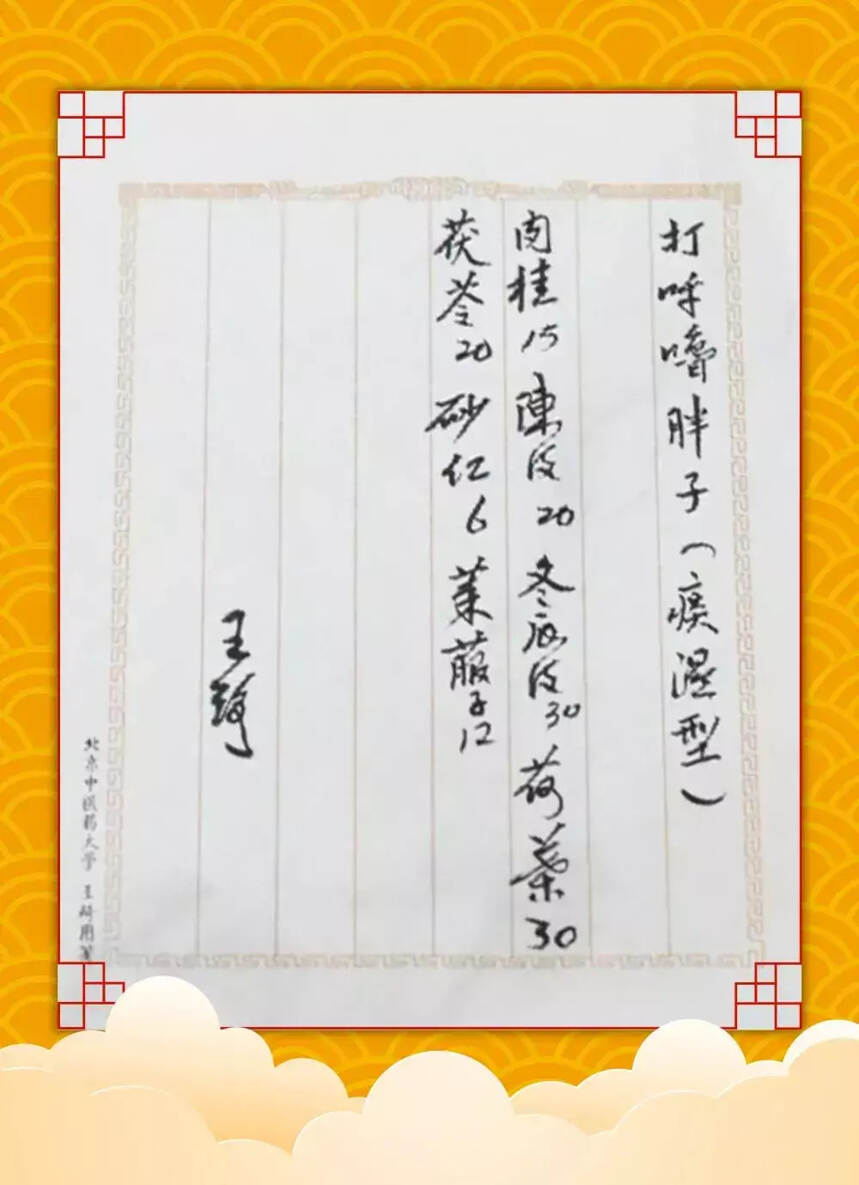 打呼噜胖子(痰湿型)
肉桂15 陳皮20 冬瓜皮30 荷葉30
茯苓20 砂仁6 莱菔子12
王琦
北京中医药大学 王琦用笺